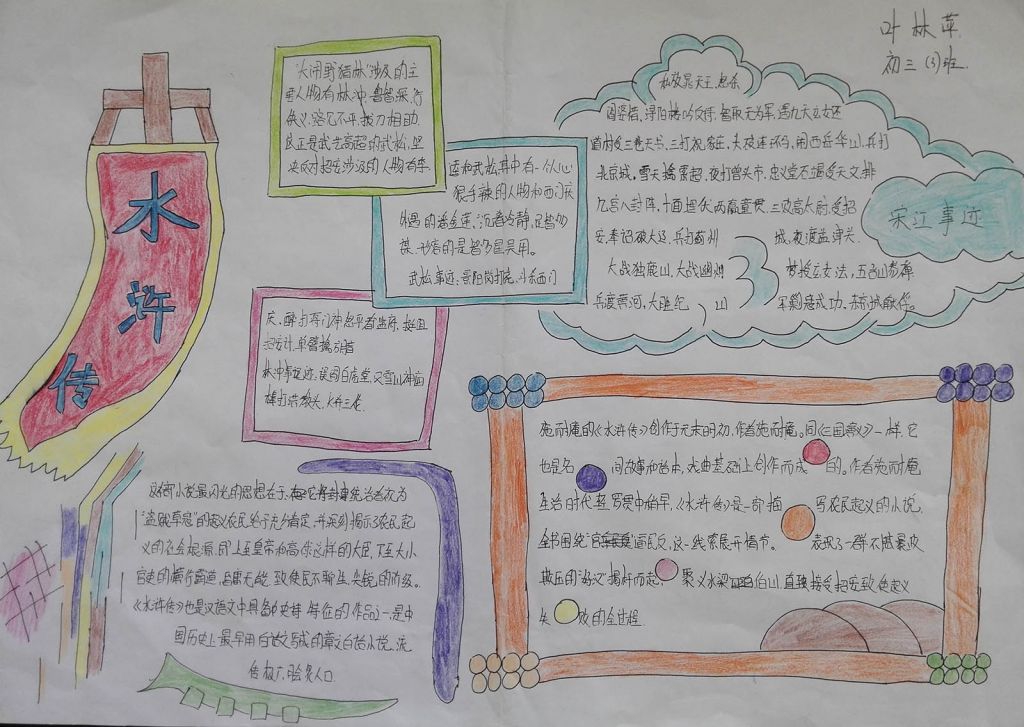 叶林萍
初三(3)班
水
浒
传
"大闹野猪林"涉及的主
要人物有林冲.鲁智深.行
侠义,路见不平拔刀相助.
坚决反对招安涉及的人物有李
逵和武松,其中有一个心
狠手辣的人物和西门庆
的潘金莲,沉着冷静,足智多
谋,形容的是智多星吴用。
武松事迹:景阳岗打虎,斗杀西门
庆,醉打蒋门神
林冲事迹:误闯白虎堂,风雪山神庙
棒打洪教头,火并王伦.
私放晁天王,怒杀
阎婆惜,浔阳楼吟反诗,智取无为军,遇九天玄女还
道村受三卷天书,三打祝家庄,大破连环马,闹西岳华山,兵打
北京城,雪天擒索超,夜打曾头市,忠义堂石碣受天文,排
九宫八卦阵,十面埋伏两赢童贯,三败高太尉,受招
安,奉诏破大辽,兵打蓟州 城,夜渡益津关.
大战独鹿山,大战幽州 梦授玄女法,五台山参禅
兵渡黄河,
宋江事迹
施耐庵的《水浒传》创作于元末明初,作者施耐庵。同《三国演义》一样,它
也是名 间故事和话本、戏曲基础上创作而成的。作者施耐庵
生活时代 罗贯中稍早.《水浒传》是一部描 写农民起义的小说,
全书围绕"官 逼民反,这一线索展开情节。 表现了一群不堪暴政
欺压的"好汉"揭竿而起, 聚义水梁 泊山,直接接受招安致使起义
失 败的全过程.
这部小说最闪光的思想在于,
"盗贼草寇"的起义农民给予充分肯定,并深刻揭示了农民起
义的社会根源,即上至皇帝和高俅这样的大臣,下至大小
官吏的横行霸道,昏庸无能,致使民不聊生
《水浒传》也是汉语文中具备史诗特征的作品之一,是中
国历史上最早用白话文写成的章义白话小说,流
传极广,脍炙人口.